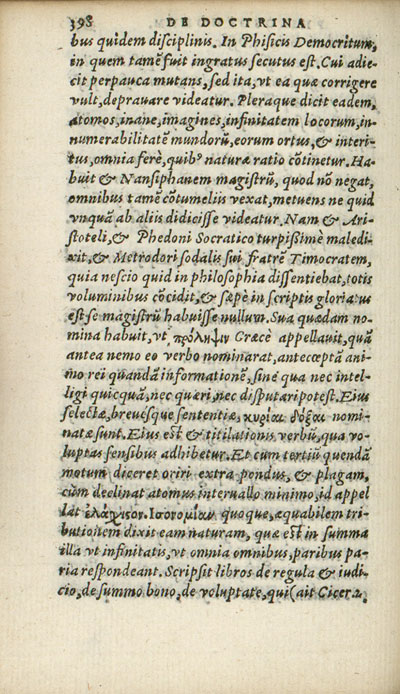 398 DE DOCTRINA
bus quidem disciplinis. In Phisicis Democritum,
in quem tamẽ fuit ingratus secutus est. Cui adie-
cit perpauca mutans, sed ita, vt ea quæ corrigere
vult, deprauare videatur. Pleraque dicit eadem,
atomos, inane, imagines, infinitatem locorum, in-
numerabilitatẽ mundorũ, eorum ortus, & interi-
tus, omnia ferè, quibꝰ naturæ ratio cõtinetur. Ha-
buit & Nansiphanem magistrũ, quod nõ negat,
omnibus tamẽ cõtumeliis vexat, metuens ne quid
vnquã ab aliis didicisse videatur. Nam & Ari-
stoteli, & Phedoni Socratico turpissimè maledi-
xit, & Metrodori sodalis sui fratrẽ Timocratem,
quia nescio quid in philosophia dissentiebat, totis
voluminibus cõcidit, & sæpè in scriptis gloriatus
est se magistrũ habuisse nullum. Sua quædam no-
mina habuit, vt πρόληψιν Græcè appellauit, quã
antea nemo eo verbo nominarat, anteceptã ani-
mo rei quandã informationẽ, sine qua nec intel-
ligi quicquã, nec quæri, nec disputari potest. Eius
selectæ, breuesque sententiæ, κυρίαι δόξαι nomi-
natæ sunt. Eius est & titilationis verbũ, qua vo-
luptas sensibus adhibetur. Et cum tertiũ quendã
motum diceret oriri extra pondus, & plagam,
cùm declinat atomus interuallo minimo, id appel
lat ἐλάχιστον. Ισονομίαν quoque, æquabilem tri-
butionem dixit eam naturam, quæ est in summa
illa vt infinitatis, vt omnia omnibus, paribus pa-
ria respondeant. Scripsit libros de regula & iudi-
cio, de summo bono, de voluptate, qui (ait Cicero,